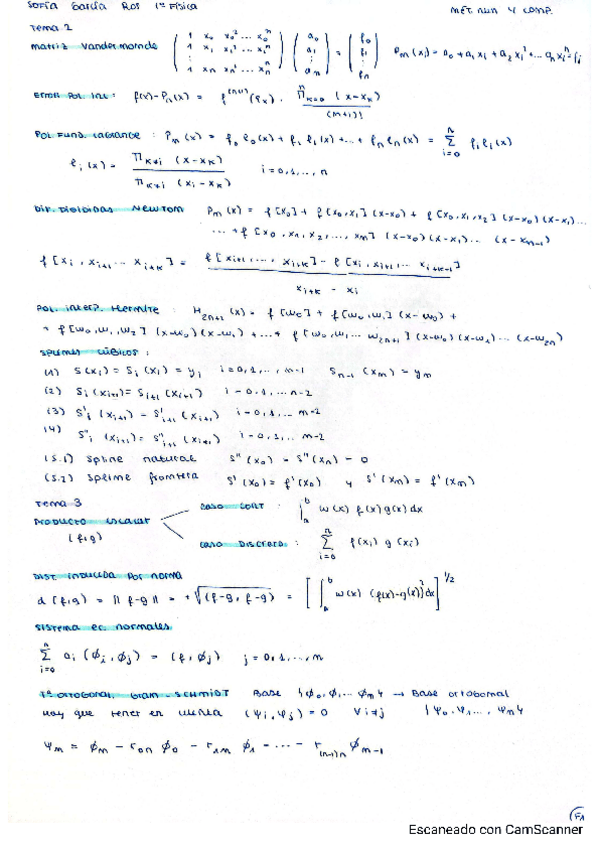 SOFÍA García Ros 1º Física MET NUM Y COMP.
Tema 2
matriz Vandermonde ( 1 x₀ x₀² ... x₀ⁿ ; 1 x₁ x₁² ... x₁ⁿ ; ⋮ ; 1 xₙ xₙ² ... xₙⁿ ) ( a₀ ; a₁ ; ⋮ ; aₙ ) = ( f₀ ; f₁ ; ⋮ ; fₙ ) Pₘ(xᵢ) = a₀ + a₁xᵢ + a₂xᵢ² + ... aₙxᵢⁿ = fᵢ
Error Pol Int: f(x) - Pₙ(x) = f⁽ⁿ⁺¹⁾(ξₓ) · ∏ⁿₖ₌₀ (x-xₖ) / (n+1)!
Pol Fund. Lagrange : Pₙ(x) = f₀ℓ₀(x) + f₁ℓ₁(x) + ... + fₙℓₙ(x) = Σⁿᵢ₌₀ fᵢℓᵢ(x)
ℓᵢ(x) = ∏ₖ≠ᵢ (x-xₖ) / ∏ₖ≠ᵢ (xᵢ-xₖ) i = 0,1,..., n
Dif. Divididas NEWTON Pₙ(x) = f[x₀] + f[x₀,x₁](x-x₀) + f[x₀,x₁,x₂](x-x₀)(x-x₁)...
... + f[x₀, x₁, x₂, ..., xₙ](x-x₀)(x-x₁)... (x-xₙ₋₁)
f[xᵢ, xᵢ₊₁ ... xᵢ₊ₖ] = f[xᵢ₊₁, ..., xᵢ₊ₖ] - f[xᵢ, xᵢ₊₁ ... xᵢ₊ₖ₋₁] / xᵢ₊ₖ - xᵢ
Pol. interp. Hermite : H₂ₙ₊₁(x) = f[w₀] + f[w₀,w₁](x-w₀) +
+ f[w₀,w₁,w₂](x-w₀)(x-w₁) + ... + f[w₀,w₁ ... w₂ₙ₊₁](x-w₀)(x-w₁)... (x-w₂ₙ)
Splines cúbicos :
(1) S(xᵢ) = Sᵢ(xᵢ) = yᵢ i = 0,1,..., n-1 Sₙ₋₁(xₙ) = yₙ
(2) Sᵢ(xᵢ₊₁) = Sᵢ₊₁(xᵢ₊₁) i = 0,1,..., n-2
(3) S'ᵢ(xᵢ₊₁) = S'ᵢ₊₁(xᵢ₊₁) i = 0,1,... n-2
(4) S''ᵢ(xᵢ₊₁) = S''ᵢ₊₁(xᵢ₊₁) i = 0,1,... n-2
(5.1) Spline natural S''(x₀) = S''(xₙ) = 0
(5.2) Spline frontera S'(x₀) = f'(x₀) y S'(xₙ) = f'(xₙ)
Tema 3
Producto escalar (f,g)
caso cont : ∫ₐᵇ w(x) f(x) g(x) dx
caso discreto : Σⁿᵢ₌₀ f(xᵢ) g(xᵢ)
Dist. inducida por norma
d(f,g) = ‖f-g‖ = +√(f-g, f-g) = [∫ₐᵇ w(x) (f(x)-g(x))² dx]^1/2
Sistema ec. normales
Σⁿᵢ₌₀ aᵢ(ϕᵢ, ϕⱼ) = (f, ϕⱼ) j = 0,1,..., n
Tª ortogonal Gram-Schmidt Base {ϕ₀, ϕ₁ ... ϕₙ} → Base ortogonal
Hay que tener en cuenta (ψᵢ, ψⱼ) = 0 ∀i≠j {ψ₀, ψ₁ ..., ψₙ}
ψₙ = ϕₙ - r₀ₙ ϕ₀ - r₁ₙ ϕ₁ - ... - r₍ₙ₋₁₎ₙ ϕₙ₋₁
Escaneado con CamScanner